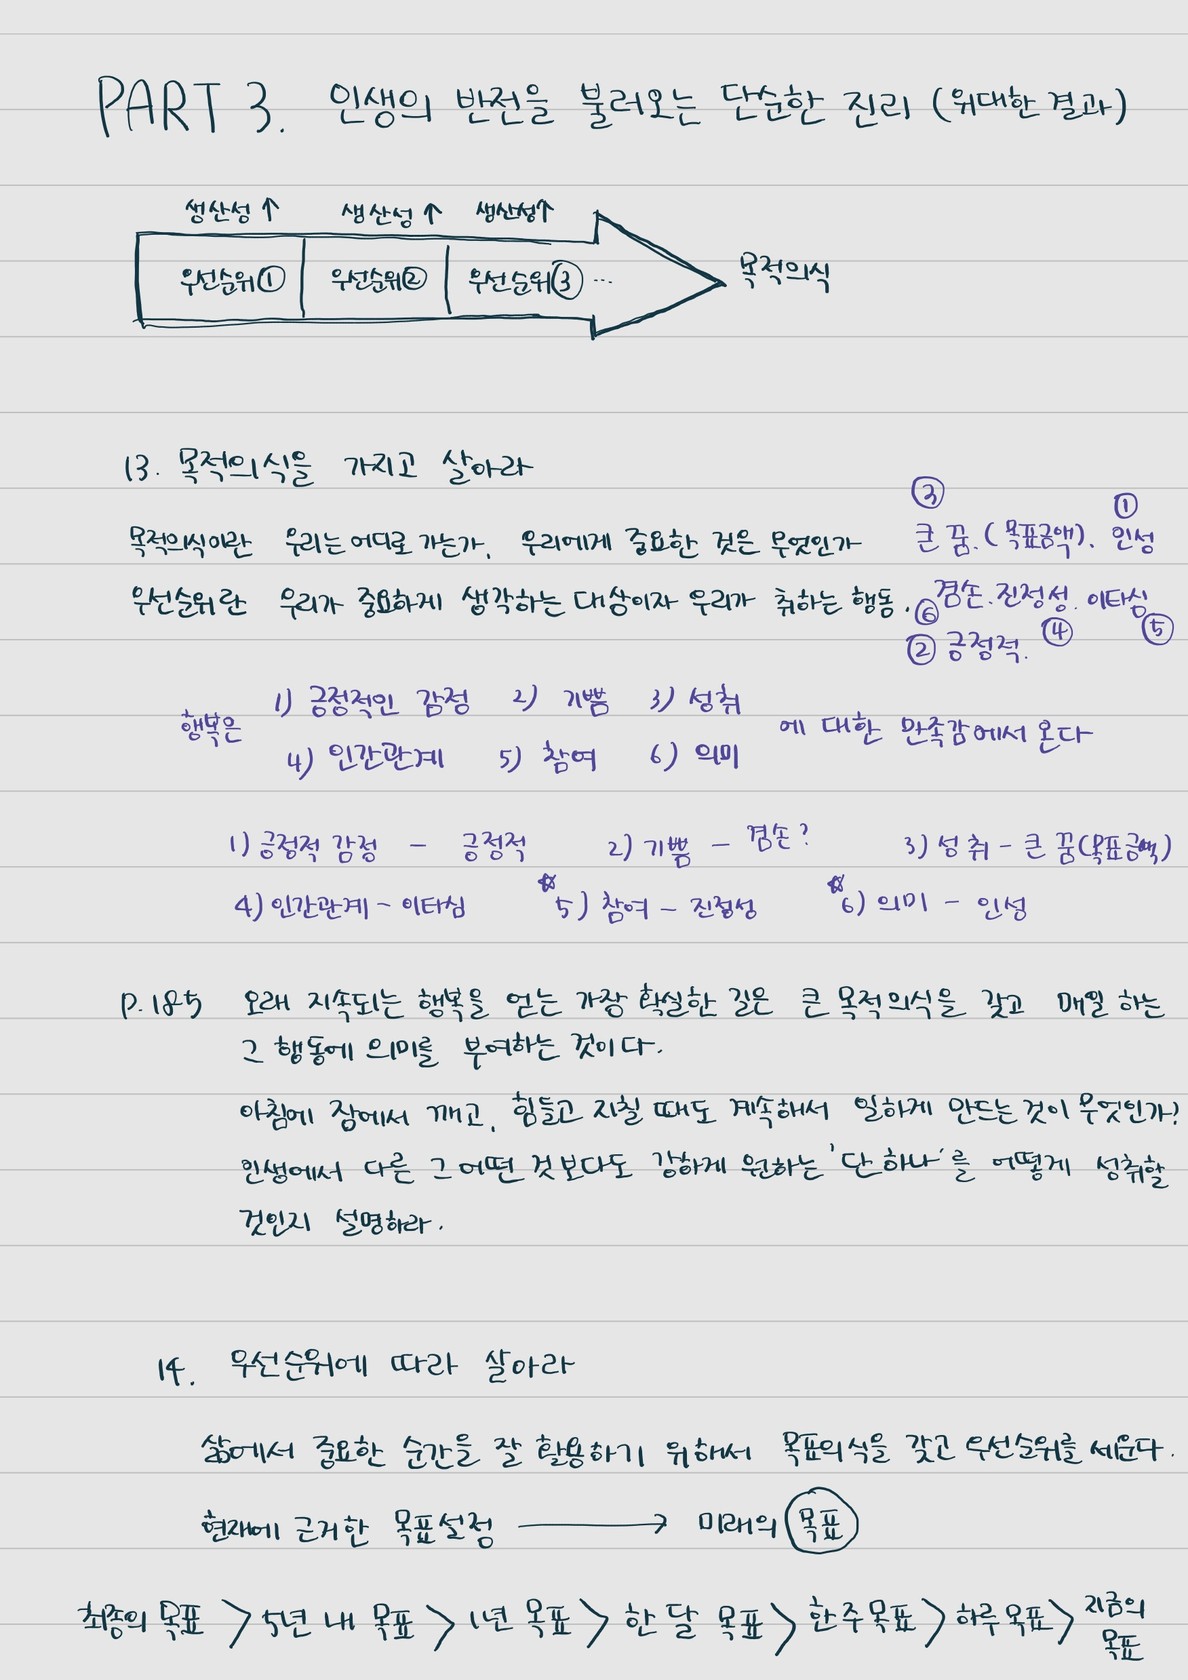 PART 3. 인생의 반전을 불러오는 단순한 진리 (위대한 결과)
생산성 ↑ 생산성 ↑ 생산성↑
우선순위① 우선순위② 우선순위③ ... 목적의식
13. 목적의식을 가지고 살아라
③ ①
목적의식이란 우리는 어디로 가는가, 우리에게 중요한 것은 무엇인가 큰 꿈. (목표금액). 인성
우선순위란 우리가 중요하게 생각하는 대상이자 우리가 취하는 행동. ⑥ 겸손. 진정성. 이타심
② 긍정적. ④ ⑤
1) 긍정적인 감정 2) 기쁨 3) 성취
행복은 에 대한 만족감에서 온다
4) 인간관계 5) 참여 6) 의미
1) 긍정적 감정 - 긍정적 2) 기쁨 - 겸손? 3) 성취 - 큰 꿈(목표금액)
4) 인간관계 - 이타심 ☆5) 참여 - 진정성 ☆6) 의미 - 인성
P.185 오래 지속되는 행복을 얻는 가장 확실한 길은 큰 목적의식을 갖고 매일 하는
그 행동에 의미를 부여하는 것이다.
아침에 잠에서 깨고, 힘들고 지칠 때도 계속해서 일하게 만드는 것이 무엇인가?
인생에서 다른 그 어떤 것보다도 강하게 원하는 '단 하나'를 어떻게 성취할
것인지 설명하라.
14. 우선순위에 따라 살아라
삶에서 중요한 순간을 잘 활용하기 위해서 목표의식을 갖고 우선순위를 세운다.
현재에 근거한 목표설정 → 미래의 목표
최종의 목표 > 5년 내 목표 > 1년 목표 > 한 달 목표 > 한주목표 > 하루목표 > 지금의
목표